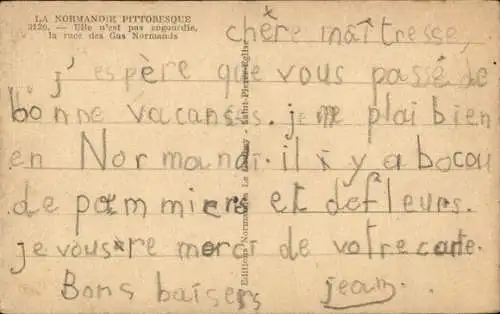 LA NORMANDIE PITTORESQUE
2126. — Elle n'est pas engourdie,
la race des Gas Normands
chère maîtresse,
j'espère que vous passé de
bonne vacanses. je me plai bien
en Normandi. il i y a bocou
de pommiers et defleurs.
je vous re merci de votre carte.
Bons baisers jean.
Editions Normandes Le Saint-Pierre-Eglise